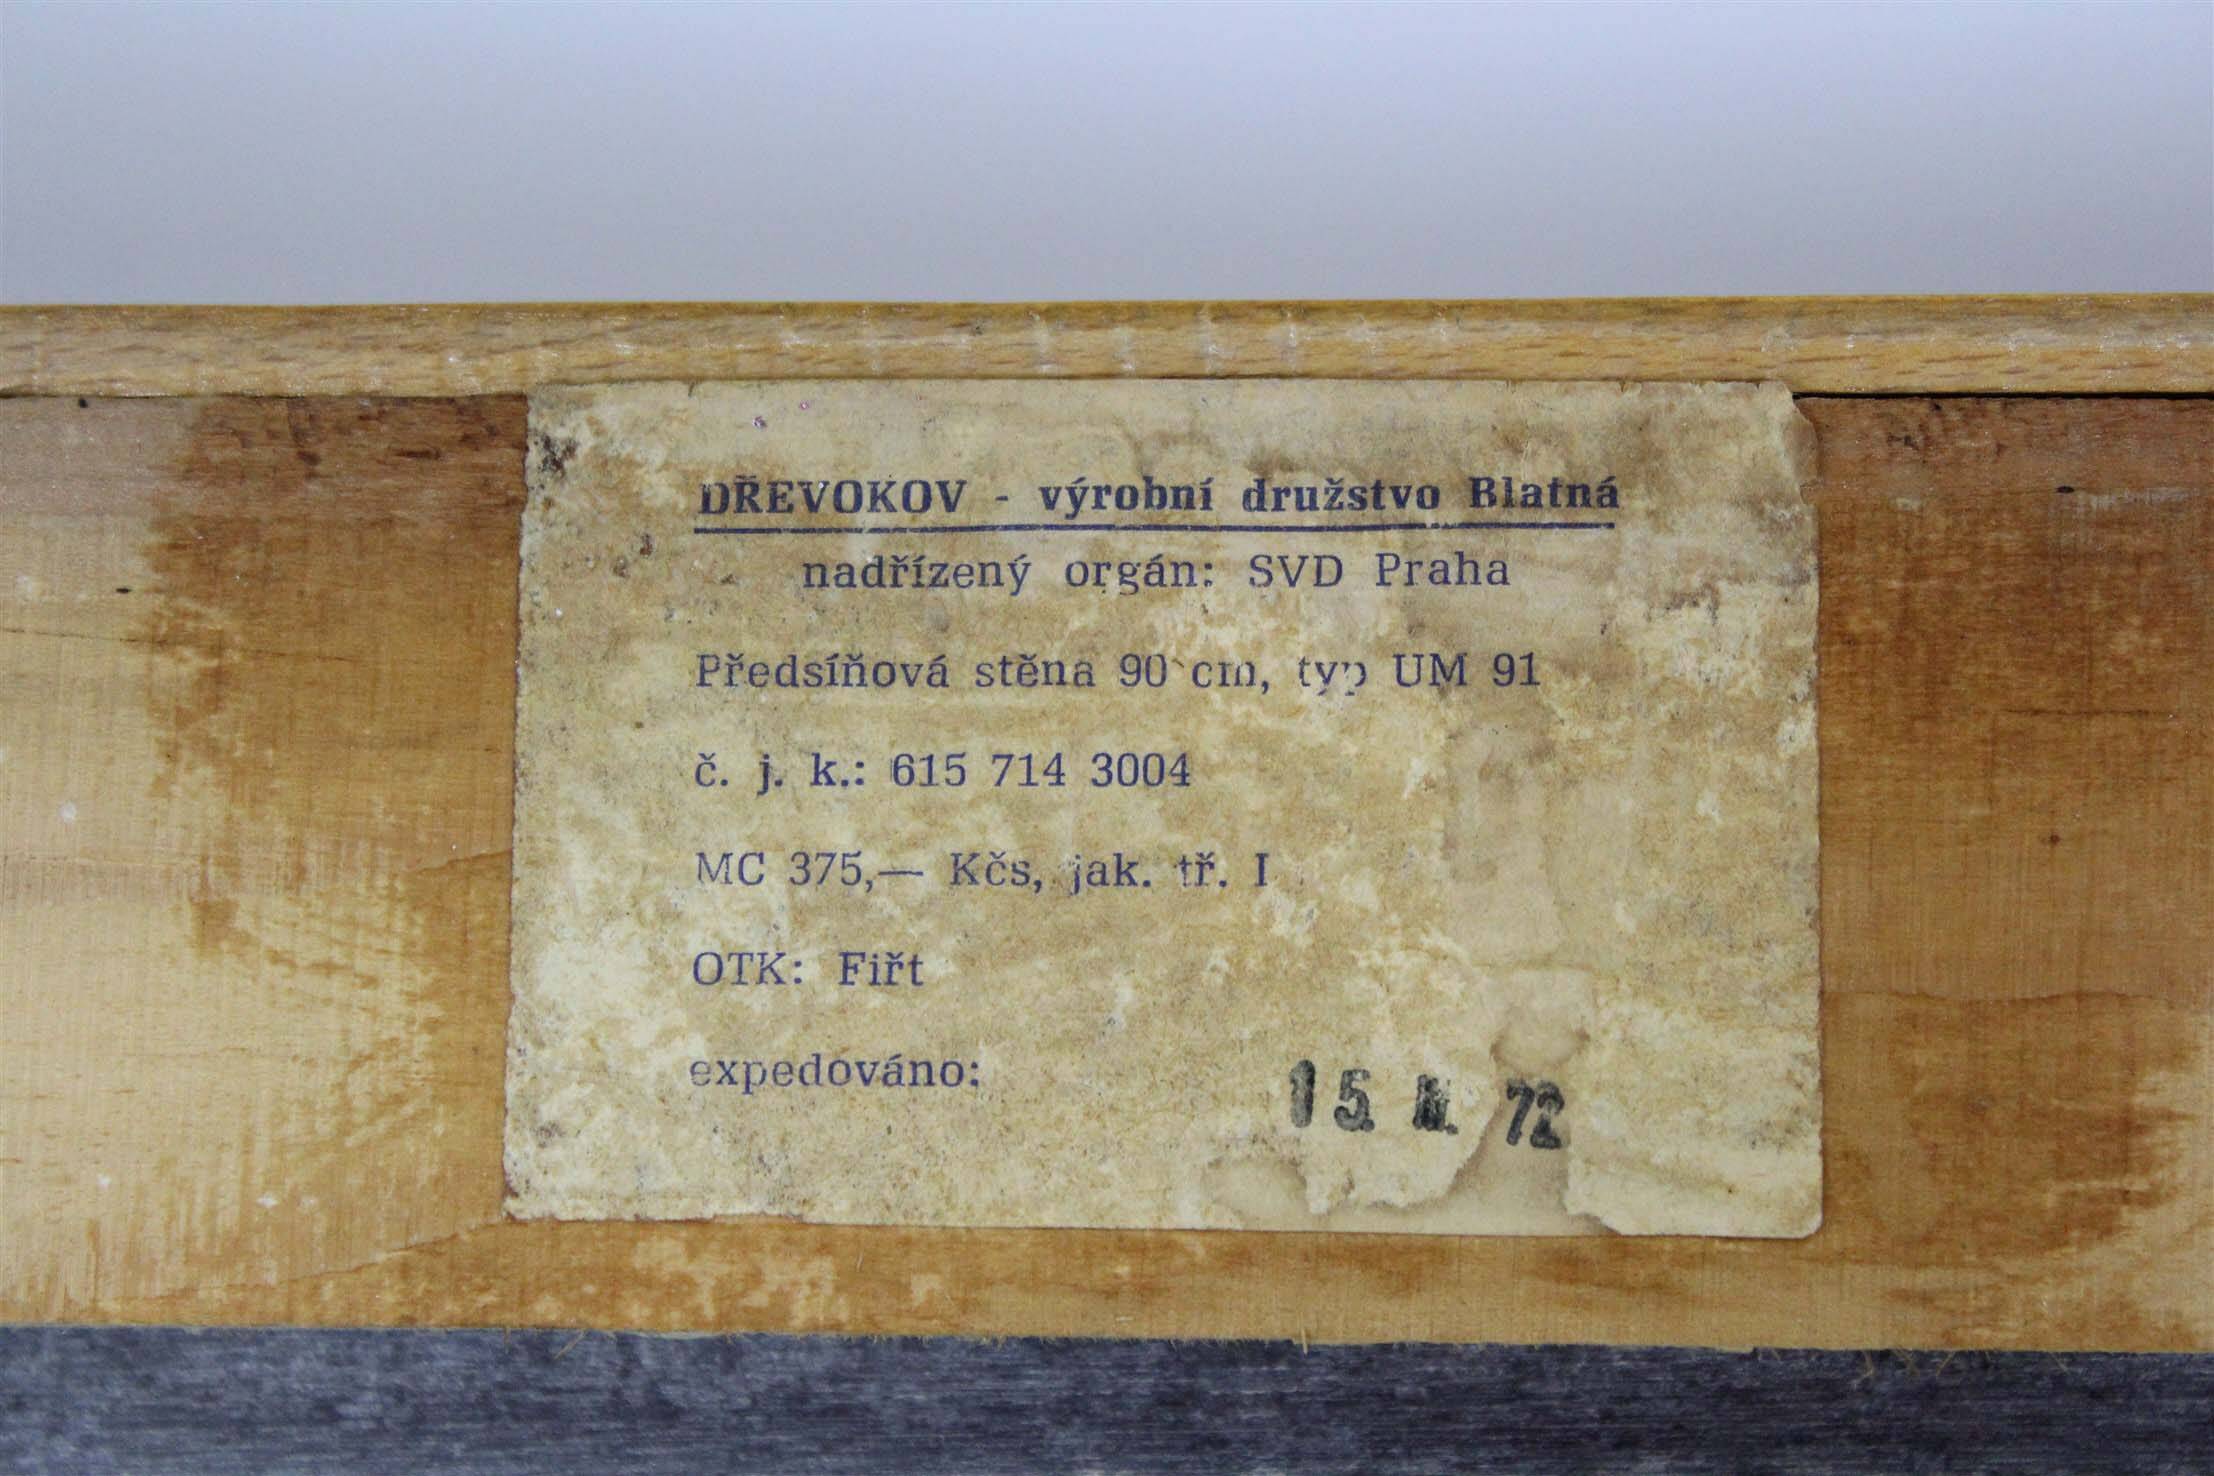 DŘEVOKOV - výrobní družstvo Blatná
nadřízený orgán: SVD Praha
Předsíňová stěna 90 cm, typ UM 91
č. j. k.: 615 714 3004
MC 375,— Kčs, jak. tř. I
OTK: Fiřt
expedováno:
15. 72